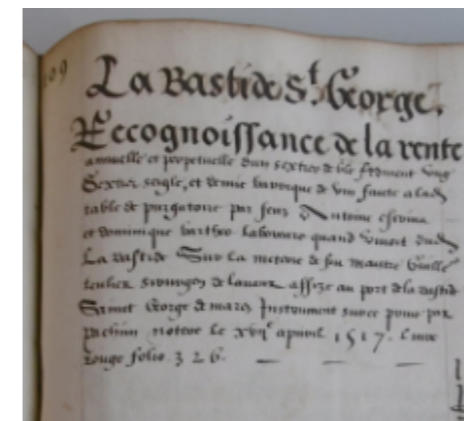 109
La Bastide St George.
Recognoissance de la rente
annuelle et perpetuelle dun sextier de ble froment ung
Sextier seigle, et demie barrique de vin faicte a lad
table de purgatoire par feuz Anthoine
et dominique barthes laboureurs quand vivoit dud
La bastide Sur la meterie de feu maistre Guille
de lavaur assize au port de la bastide
Sainct George de mars Instrument surce prins par
notere le xvije apvril 1517. Livre
rouge folio 326.